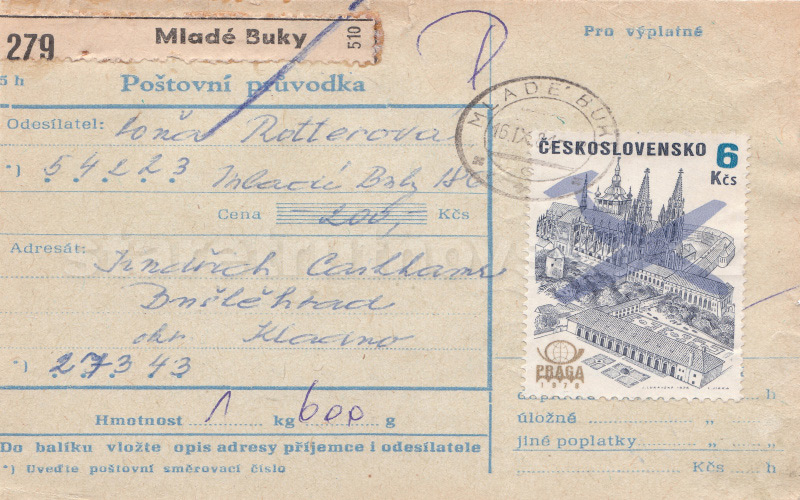 279 Mladé Buky 510
Pro výplatné
Poštovní průvodka
MLADÉ BUK
16.IX.
Odesílatel: Soňa Rotterova
*) 54223 Mladé Buky 186
Cena 200,- Kčs
ČESKOSLOVENSKO 6
Kčs
Adresát: Jindřich
Buštěhrad
okr. Kladno
*) 27343
PRAGA
1978
Hmotnost 1 kg 600 g
h
úložné „ „
jiné poplatky „ „
Kčs h
Do balíku vložte opis adresy příjemce i odesílatele
*) Uveďte poštovní směrovací číslo